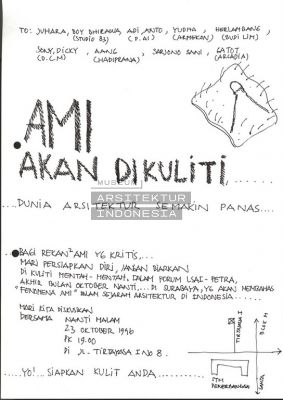 TO: JUHARA, BOY BHIRAWA, ADI, ANTO, YUDHA, HERLAMBANG,
(STUDIO 83) (P.AI) (ARMEKON) (BUDI LIM)
SONY, DICKY, AANG, SARJONO SANI, GATOT
(D.C.M) (HADIPRANA) (ARCADIA)
.AMI
AKAN DIKULITI,......
MUSEUM
ARSITEKTUR
INDONESIA
....DUNIA ARSITEKTUR SEMAKIN PANAS....
BAGI REKAN² AMI YG KRITIS,...
MARI PERSIAPKAN DIRI, JANGAN BIARKAN
DI KULITI MENTAH-MENTAH. DALAM FORUM LSAI-PETRA,
AKHIR BULAN OKTOBER NANTI... DI SURABAYA, YG AKAN MEMBAHAS
"FENOMENA AMI" DALAM SEJARAH ARSITEKTUR DI INDONESIA......
MARI KITA DISKUSIKAN
BERSAMA NANTI MALAM
23 OKTOBER 1996
PK 19.00
DI JL. TIRTAYASA I NO 8.
TIRTAYASA I
BLOK M
STM
PENERBANGAN
....YO!.. SIAPKAN KULIT ANDA..........